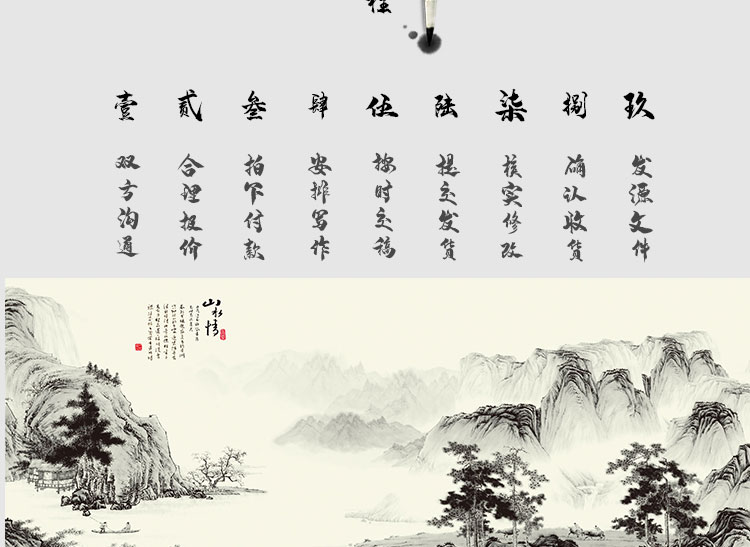 程
壹 贰 叁 肆 伍 陆 柒 捌 玖
双方沟通
合理报价
拍下付款
安排写作
按时交稿
提交发货
核实修改
确认收货
发源文件
山水情